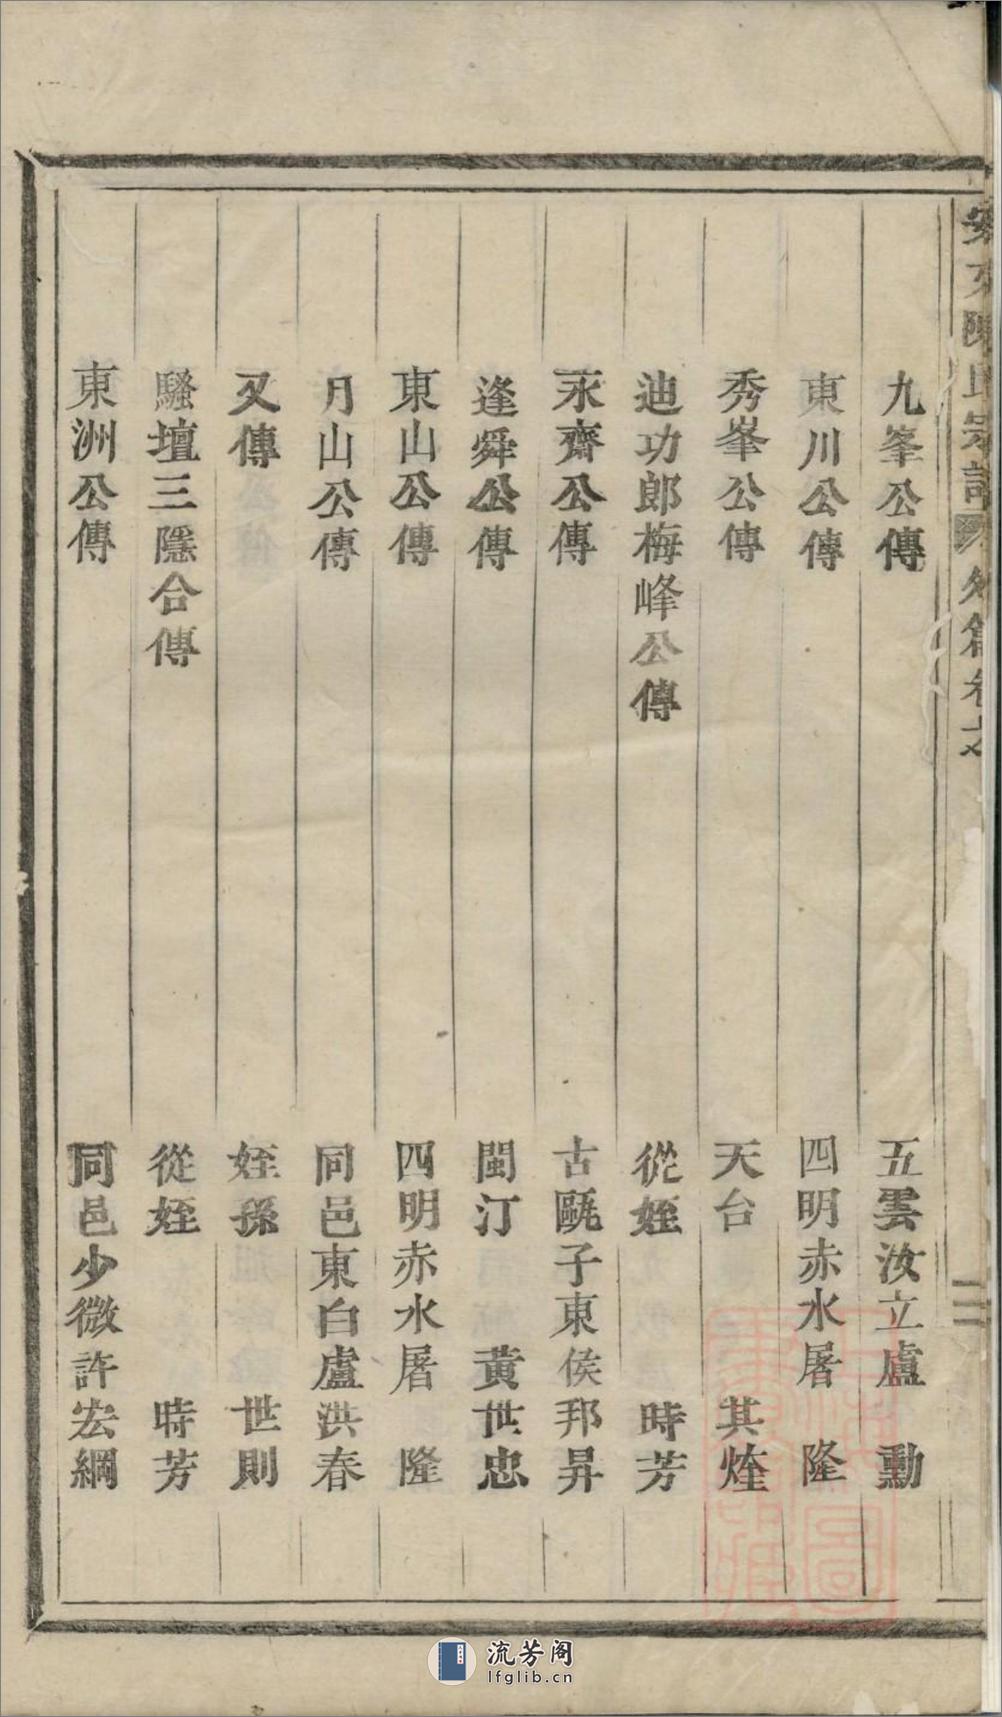 安文陳氏宗譜 外篇卷之
九峯公傳 五雲汝立盧 勳
東川公傳 四明赤水屠 隆
秀峯公傳 天台 其煃
迪功郎梅峰公傳 從姪 時芳
永齋公傳 古甌子東侯邦昇
逢舜公傳 閩汀 黃世忠
東山公傳 四明赤水屠 隆
月山公傳 同邑東白盧洪春
又傳 姪孫 世則
騷壇三隱合傳 從姪 時芳
東洲公傳 同邑少微許宏綱
流芳阁
lfglib.cn